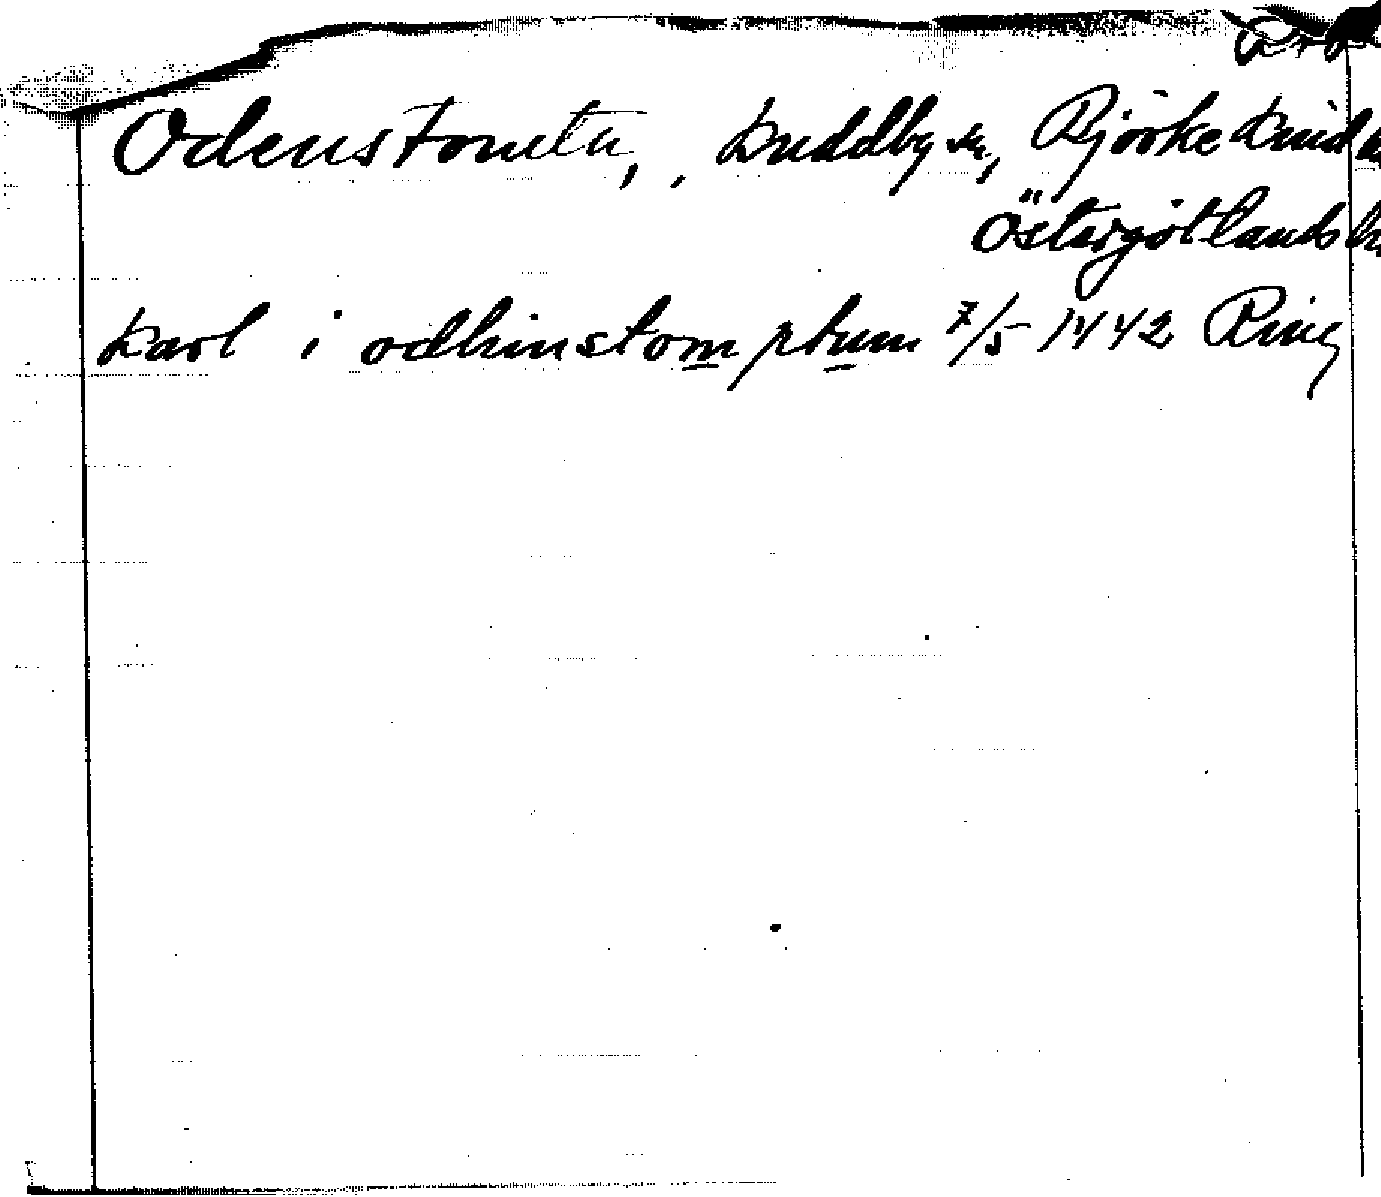 Odenstomta, Kuddby sn, Björkekinds
Östergötlands
Karl i odhinstomptum 7/5 1442 Ring